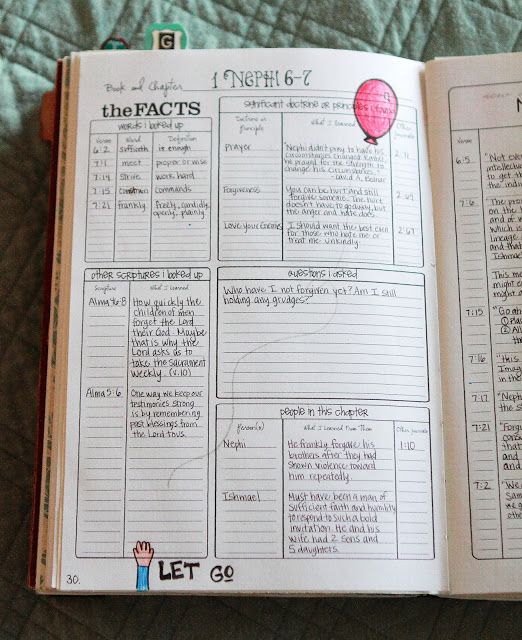 G
Book and Chapter
1 Nephi 6-7
the FACTS
words i looked up
Verse Word Definition
6:2 sufficeth is enough
7:1 meet proper or wise
7:14 strive work hard
7:15 constrain commands
7:21 frankly freely, candidly,
openly, plainly
significant doctrine or principles i
Doctrine or Principle What I Learned Other Journals
Prayer "Nephi didn't pray to have his
circumstances changed. Rather,
he prayed for the strength to
change his circumstances."
- David A. Bednar
Forgiveness You can be hurt and still
forgive someone. The hurt
doesn't have to go away, but
the anger and hate does.
2:67
Love your Enemies I should want the best even
for those who hate me or
treat me unkindly.
2:67
other scriptures i looked up
Scripture What I Learned
Alma 46:8 How quickly the
children of men
forget the Lord
their God. Maybe
that is why the
Lord asks us to
take the Sacrament
weekly. (v.10)
Alma 5:6 One way we keep our
testimonies strong
is by remembering
past blessings from
the Lord to us.
questions i asked
Who have I not forgiven yet? Am I still
holding any grudges?
people in this chapter
Person(s) What I Learned From Them Other Journals
Nephi He frankly forgave his
brothers after they had
shown violence toward
him repeatedly.
1:10
Ishmael Must have been a man of
sufficient faith and humility
to respond to such a bold
invitation. He and his
wife had 2 sons and
5 daughters.
30.
LET GO
6:5 "Not
intellec
to get
the ind
7:6 The pro
on the
and of
which is
lineage
and that
Ishmael
This m
might
might e
7:15 "Go a
7:16 "This
Imag
in the
7:17 "Nep
7:21 "Forg
that
and
and
7:2 "We
Sam
we g
othe